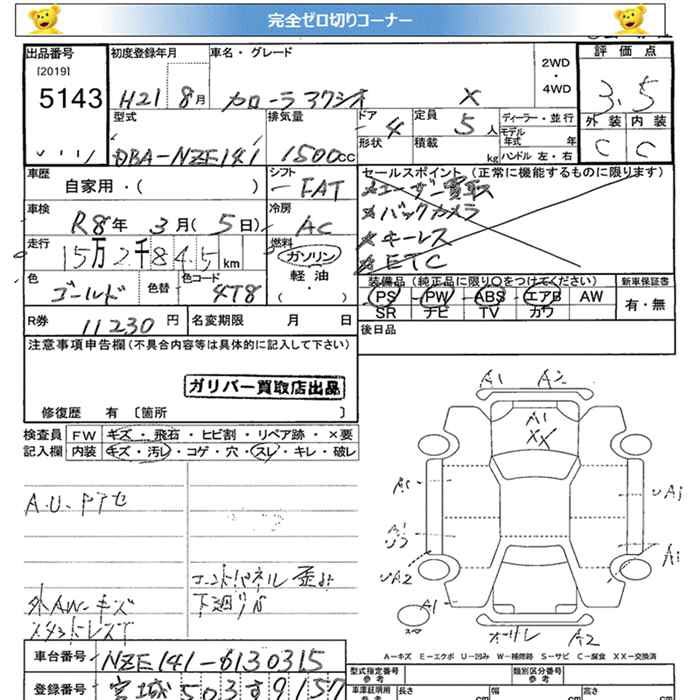 完全ゼロ切りコーナー
出品番号
[2019]
5143
初度登録年月
H21 8月
車名・グレード
カローラアクシオ X
2WD
・
4WD
評価点
3.5
外装 内装
C C
型式
DBA-NZE141
排気量
1500cc
ドア
4
形状
定員
5人
積載
kg
ディーラー・並行
モデル
年式 年
ハンドル 左・右
車歴
自家用・( )
シフト
FAT
車検
R8年 3月(5日)
冷房
AC
走行
15万2千845km
燃料
ガソリン
軽油
( ・ )
色
ゴールド
色替
色コード
4T8
セールスポイント(正常に機能するものに限ります)
ユーザー買取
バックカメラ
キーレス
ETC
装備品(純正品に限り○をつけてください)
PS PW ABS エアB AW
SR ナビ TV カワ
新車保証書
有・無
R券 11230円
名変期限 月 日
後日品
注意事項申告欄(不具合内容等は具体的に記入して下さい)
ガリバー買取店出品
修復歴 有 〔箇所 〕
検査員
記入欄
FW キズ・飛石・ヒビ割・リペア跡・×要
内装 キズ・汚レ・コゲ・穴・スレ・キレ・破レ
A.U.ドアセ
外AW-キズ
スタットレス
下廻りサ
A1 A2
A1
XX
A1
UA2
A1
A2
A-キズ E-エクボ U-凹み W-補修跡 S-サビ C-腐食 XX-交換済
車台番号 NZE141-6130315
登録番号 宮城503す9157
型式指定番号
類別区分番号
車庫証明用
参考
長さ
cm
幅
cm
高さ
cm